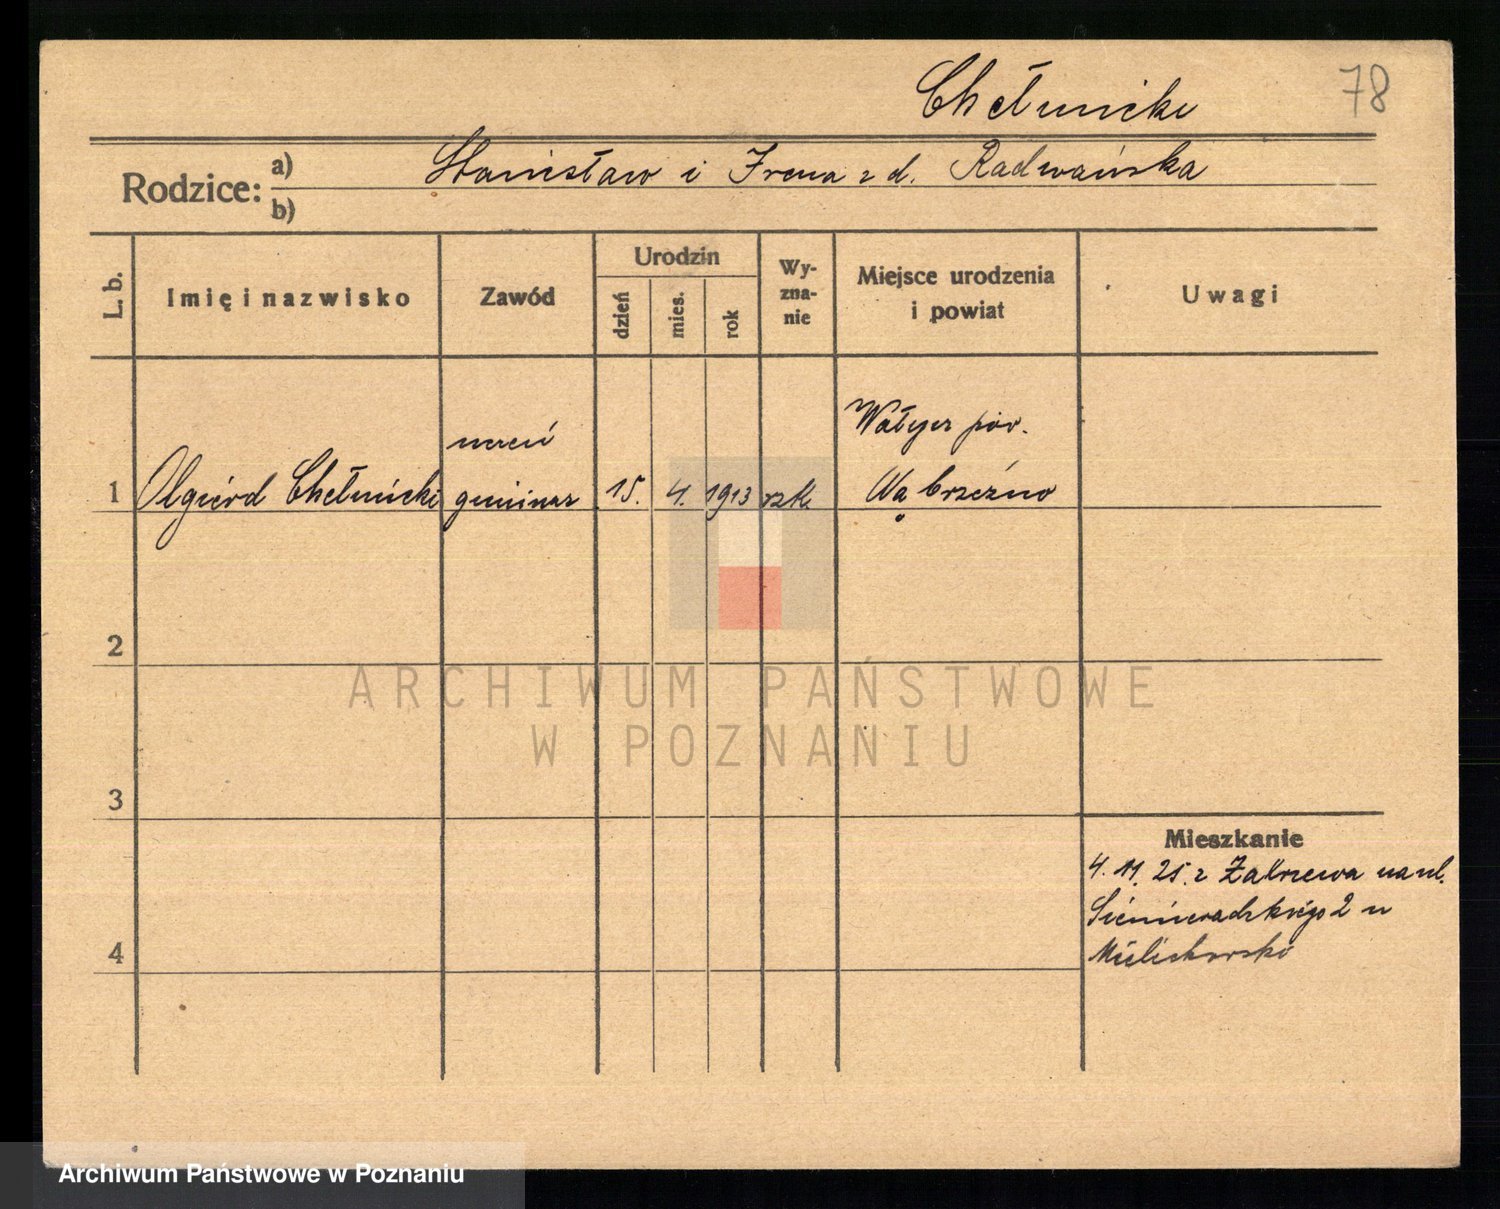 Chełmicki
78
Rodzice:
a) Stanisław i Irena z d. Radwańska
b)
L. b.
Imię i nazwisko
Zawód
Urodzin
dzień
mies.
rok
Wy-
zna-
nie
Miejsce urodzenia
i powiat
Uwagi
uczeń
Wałycz pow.
1 Olgierd Chełmicki gimnaz 15. 4. 1913 rzk. Wąbrzeźno
2
ARCHIWUM PAŃSTWOWE
W POZNANIU
3
Mieszkanie
4. 11. 25. z Zakrzewa na ul.
Siemieradzkiego 2 u
4
Archiwum Państwowe w Poznaniu